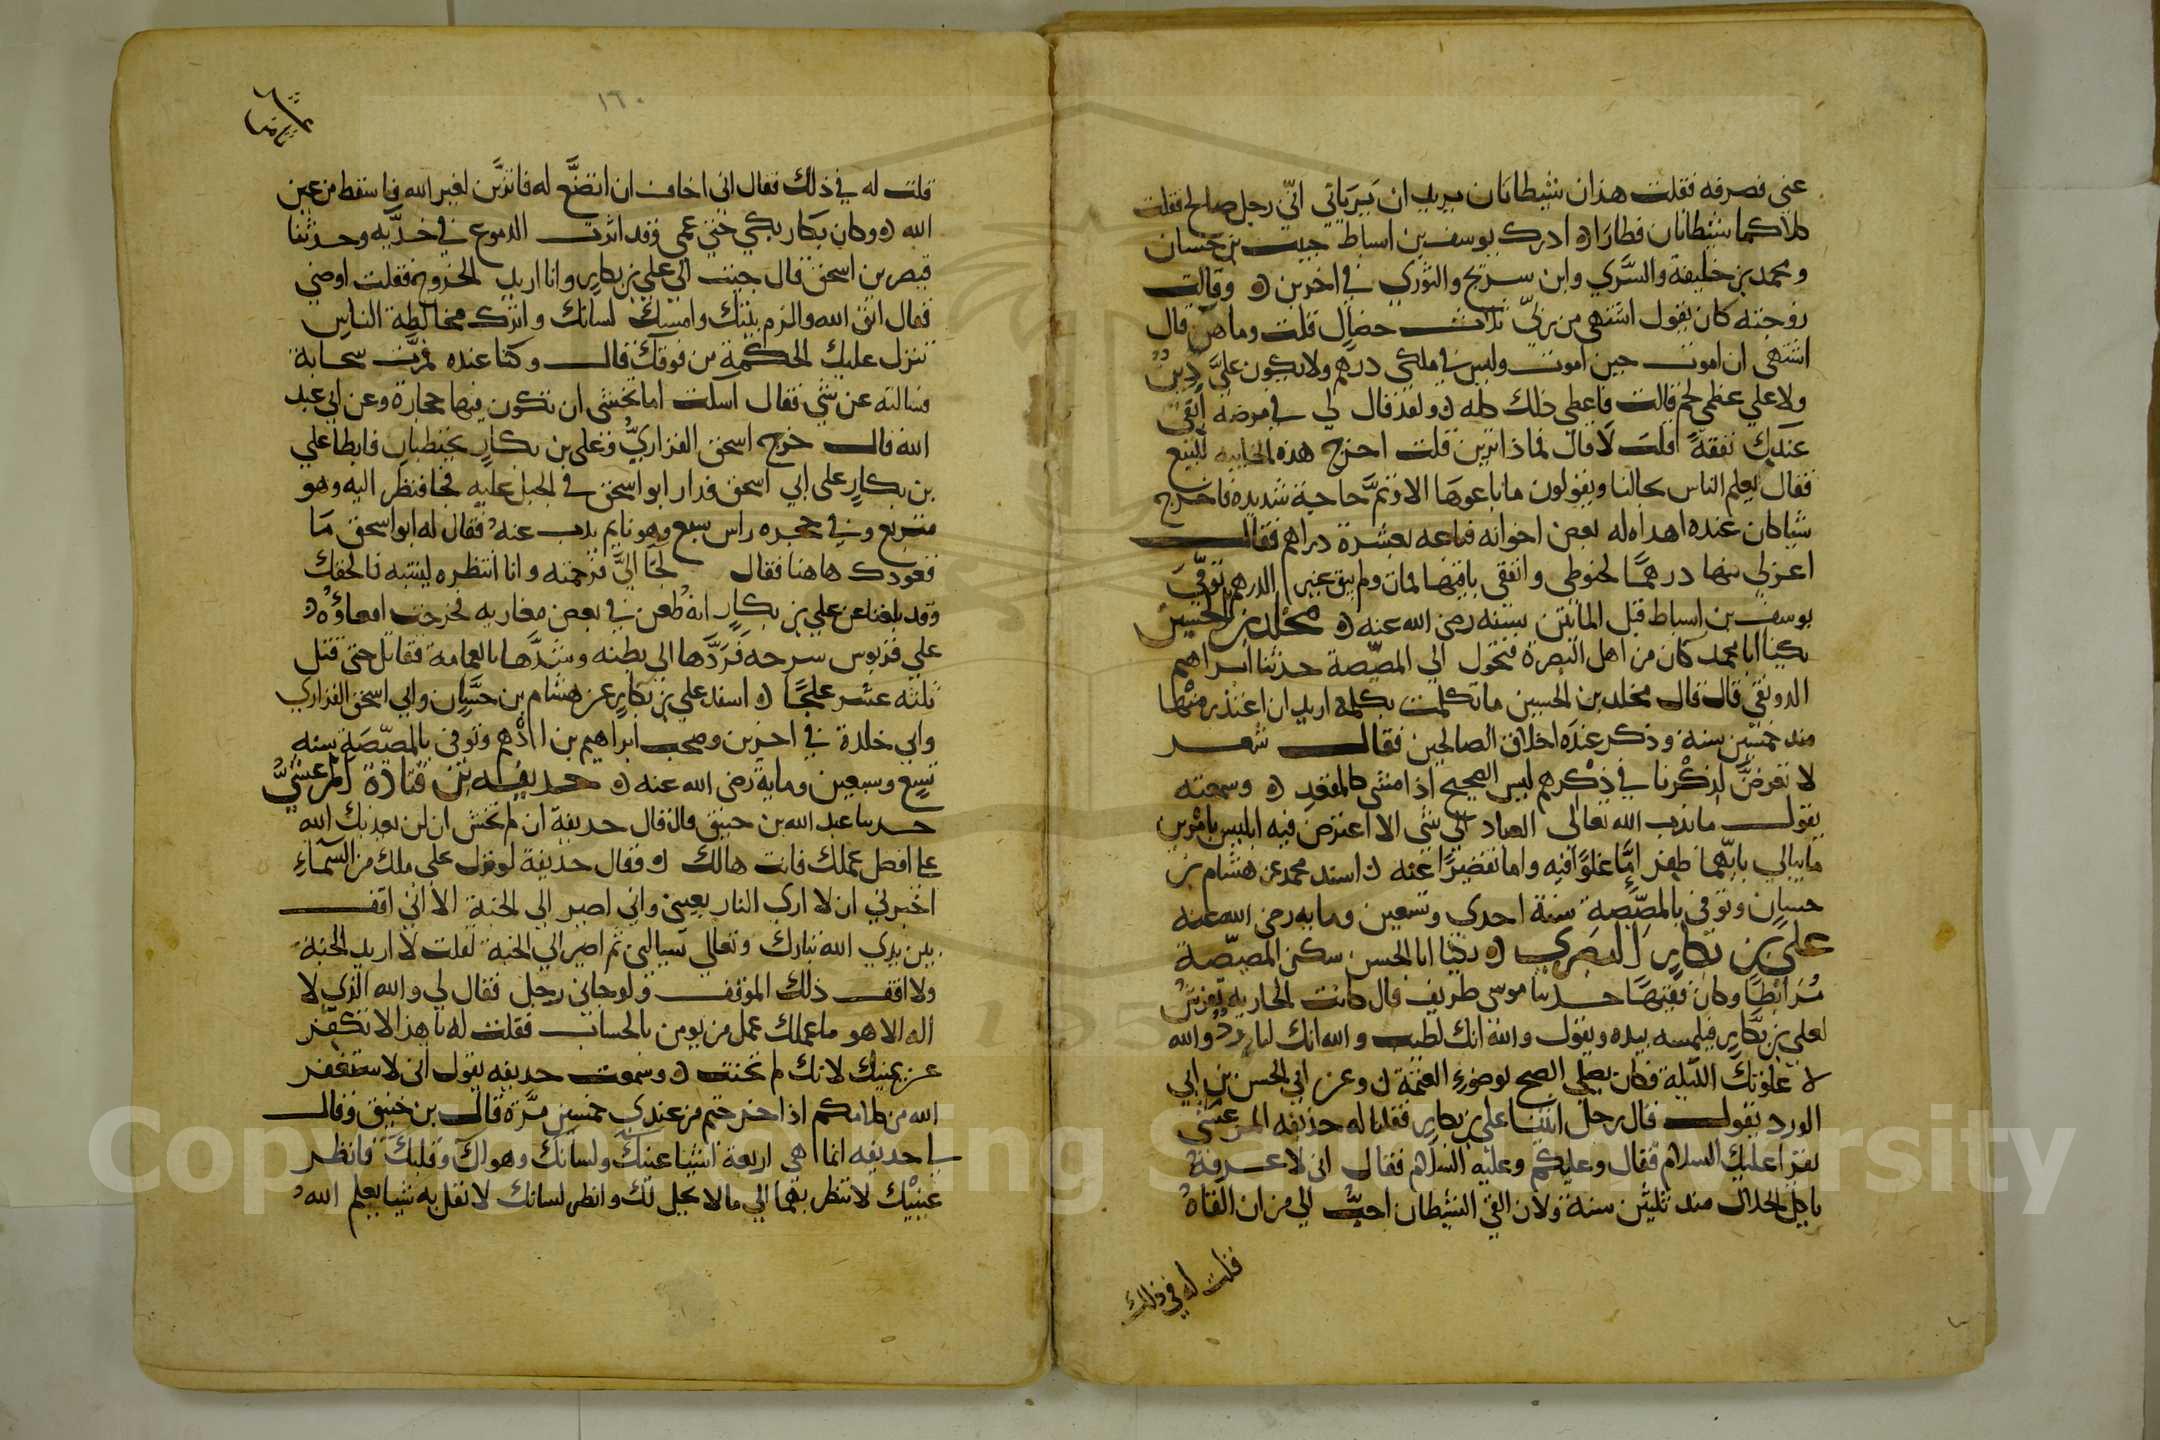 عني فصرفه فقلت هذان شيطانان يريدان ان يريآني اني رجل صالح فقلت
كلاكما شيطانان فطارا ادرك يوسف بن اسباط حبيب بن حسان
ومحمد بن خليفة والسري وابن سريج والثوري في اخرين وقالت
زوجته كان يقول اشتهي من ربي ثلاث خصال قلت وما هن قال
اشتهى ان اموت حين اموت وليس في ملكي درهم ولا يكون علي دين
ولا علي عظمي لحم قالت فاعطي ذلك كله ولقد قال لي في مرضه ابقي
عندك نفقة قلت لا قال فماذا ترين قلت اخرج هذه الخابيه للبيع
فقال يعلم الناس بحالنا ويقولون ما باعوها الا وثم حاجة شديدة فاخرج
شيا كان عنده اهداه له بعض اخوانه فباعه بعشرة دراهم فقال
اعزلي منها درهما لحنوطي وانفقي باقيها فمات ولم يبق غير الدرهم توفي
يوسف بن اسباط قبل المائتين بسنه رضي الله عنه مخلد بن الحسين
يكنا ابا محمد كان من اهل البصرة فتحول الي المصيصة حدثنا ابراهيم
الدورقي قال قال مخلد بن الحسين ما تكلمت بكلمة اريد ان اعتذر منها
منذ خمسين سنة وذكر عنده اخلاق الصالحين فقال شعر
لا تعرضن لذكرنا في ذكرهم ليس الصحيح اذا مشى كالمقعد وسمعته
يقول ما ندب الله تعالى العباد الي شي الا اعترض فيه ابليس بامرين
ما يبالي بايهما ظفر اما غلوا فيه واما تقصيرا عنه اسند محمد عن هشام بن
حسان وتوفي بالمصيصة سنة احدي وتسعين وما يه رضي الله عنه
علي بن بكار البصري يكنا ابا الحسن سكن المصيصة
مرابطا وكان فقيها حدثنا موسى طريف قال كانت الجاريه تفرش
لعلي بن بكار فيلمسه بيده ويقول والله انك لطيب والله انك لبارد والله
لا علوتك الليلة فكان يصلي الصبح بوضوء العتمة وعن ابي الحسن بن ابي
الورد يقول قال رجل اتينا علي بن بكار فقلنا له حذيفه المرعشي
يقرا عليك السلام فقال وعليكم وعليه السلام فقال اني لاعرفه
ياكل الحلال منذ ثلثين سنة ولان القي الشيطان احب الي من ان القاه
قلت له في ذلك
١٦٠
قلت له في ذلك فقال اني اخاف ان اتصنع له فاتزين لغير الله فاسقط من عين
الله وكان بكار يبكي حتي عمي وقد اثرت الدموع في خديه وحدثنا
فيض بن اسحق قال جيت الي علي بن بكار وانا اريد الخروج فقلت اوصني
فقال اتق الله والزم بيتك وامسك لسانك واترك مخالطة الناس
تنزل عليك الحكمة من فوقك قال وكنا عنده فمرت سحابة
فسالته عن شي فقال اسكت اما تخشى ان تكون فيها حجارة وعن ابي عبد
الله قال خرج اسحق الفزاري وعلي بن بكار يحتطبان فابطا علي
بن بكار على ابي اسحق فدار ابو اسحق في الجبل عليه فجا فنظر اليه وهو
متربع وفي حجره راس سبع وهو نايم يذب عنه فقال له ابو اسحق ما
قعودك هاهنا فقال لجا الي فرحمته وانا انتظره لينتبه فالحقك
وقد بلغنا عن علي بن بكار انه طعن في بعض مغازيه فخرجت امعاؤه
علي قربوس سرجه فردها الي بطنه وشدها بالعمامة فقاتل حتى قتل
ثلثه عشر علجا اسند علي بن بكار عن هشام بن حسان وابي اسحق الفزاري
وابي خلدة في اخرين وصحب ابراهيم بن ادهم وتوفي بالمصيصة سنه
تسع وسبعين وماية رضي الله عنه حذيفه بن قتادة المرعشي
حدثنا عبد الله بن خبيق قال قال حذيفة ان لم تخش ان لن يعذبك الله
علي افضل عملك فانت هالك وقال حذيفة لو نزل علي ملك من السماء
اخبرني ان لا اري النار بعيني واني اصير الي الجنة الا اني اقف
بين يدي الله تبارك وتعالي يسالني ثم اصير الي الجنة لقلت لا اريد الجنة
ولا اقف ذلك الموقف ولو جاني رجل فقال لي والله الذي لا
اله الا هو ما عملك عمل من يومن بالحساب فقلت له يا هذا لا تكفر
عن يمينك لانك لم تحنث وسمعت حذيفه يقول اني لاستغفر
الله من كلامكم اذا خرجتم من عندي خمسين مرة قال بن خبيق وقال
يا حذيفه انما هي اربعة اشيا عينك ولسانك وهواك وقلبك فانظر
عينيك لا تنظر بهما الي ما لا يحل لك وانظر لسانك لا تقل به شيا يعلم الله
Copyright © King Saud University